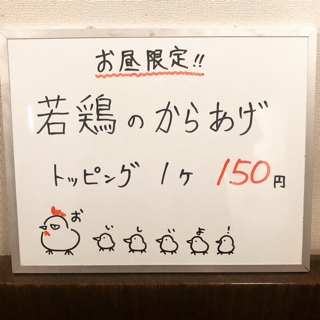 お昼限定!!
若鶏のからあげ
トッピング 1ヶ 150円
おいしいよ!